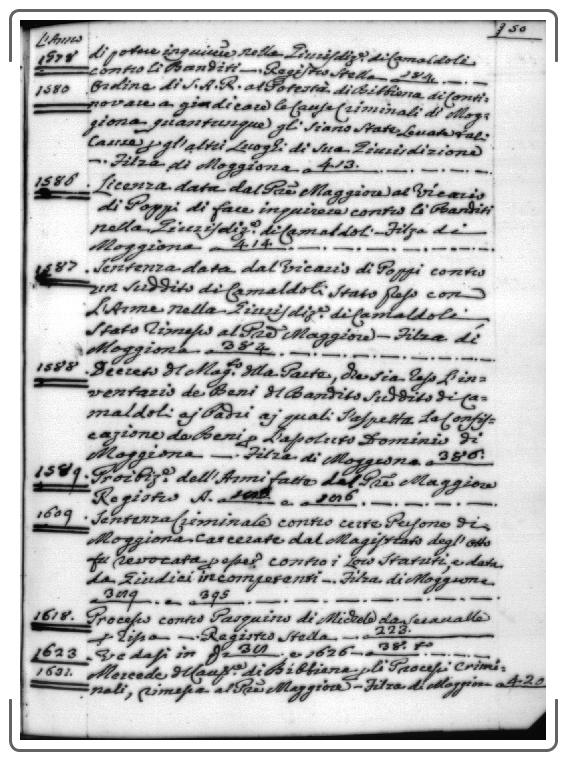 350
L'Anno
1578 di potere inquirere nella Giurisdiz.e di Camaldoli
contro li Banditi — Registro Stella 284
1580 Ordine di S.A.R. al Potestà di Bibbiena di Conti=
novare a giudicare le Cause Criminali di Mog=
giona quantunque gli siano State Levate
Cause gl'altri Luoghi di Sua Giurisdizione
- Filza di Moggiona a 413.
1586 Licenza data dal Pre Maggiore al Vicario
di Poppi di fare inquirere contro li Banditi
nella Giurisdiz.e di Camaldoli - Filza di
Moggiona 414
1587 Sentenza data dal Vicario di Poppi contro
un Suddito di Camaldoli Stato preso con
L'Arme nella Giurisdiz.e di Camaldoli
Stato rimesso al Pre Maggiore - Filza di
Moggiona a 384
1588 Decreto d'l Mag.to della Parte, che sia reso L'in=
ventario de Beni d'l Bandito Suddito di Ca=
maldoli a' Padri a' quali S'aspetta La Confis=
cazione de Beni p L'asoluto Dominio di
Moggiona — Filza di Moggiona a 386.
1589 Proibiz.e dell'Armi fatte dal Pre Maggiore
Registro A. e 206
1609 Sentenza Criminale contro certe Persone di
Moggiona Carcerate dal Magistrato degl'Otto
fu revocata p esser contro i Loro Statuti, e data
da Giudici incompetenti - Filza di Moggiona
389 a 395
1618. Processo contro Pasquino di Michele da Seravalle
p Rissa - Registro Stella 223.
1623 - Ve dasi in e 1626 38.
1631. Mercede d'l di Bibbiena p li Processi Crimi=
nali, rimessa al Pre Maggiore - Filza di Moggiona a 420